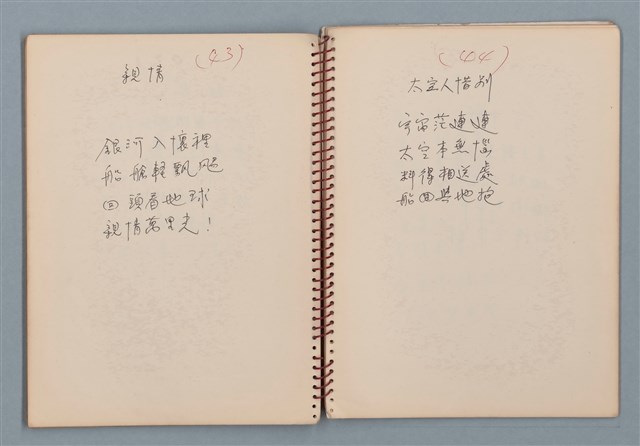 (43)
親情
銀河入懷裡
船艙輕飄飄
回頭看地球
親情萬里光！
(44)
太空人惜別
宇宙茫連連
太空本無惱
料得相送處
船回與地抱